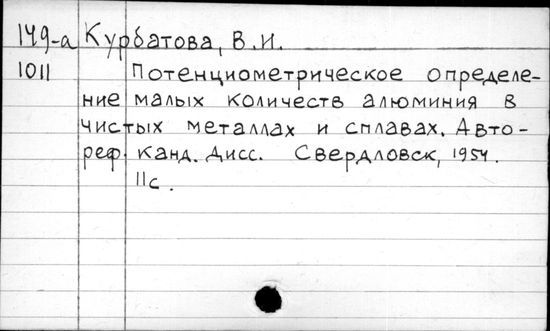 149-а Курбатова, В.И.
1011 Потенциометрическое определе-
ние малых количеств алюминия в
чистых металлах и сплавах. Авто-
реф. канд. дисс. Свердловск, 1954.
11с.